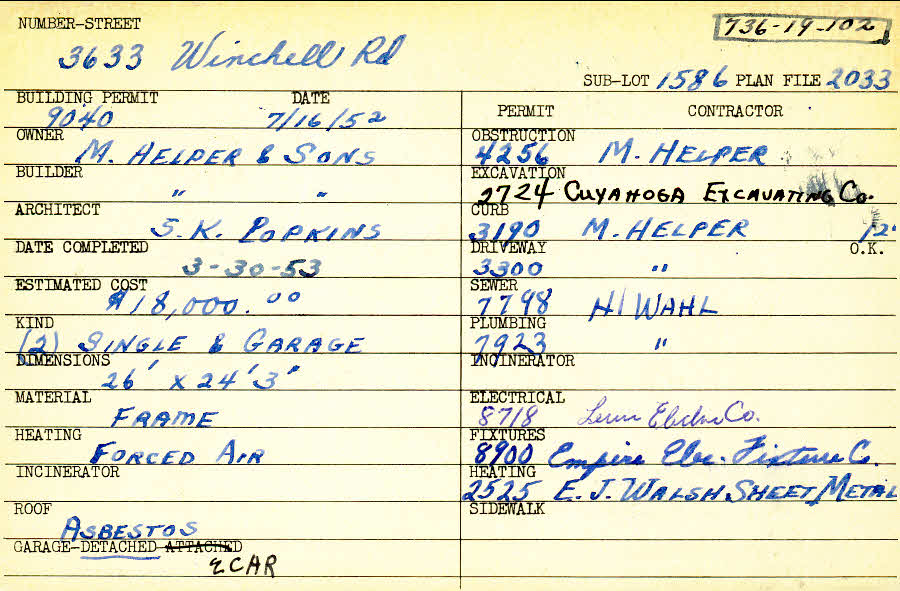 NUMBER-STREET
736-19-102
3633 Winchell Rd
SUB-LOT 1586 PLAN FILE 2033
BUILDING PERMIT DATE
9040 7/16/52
OWNER
M. HELPER & SONS
BUILDER
" "
ARCHITECT
S. K. POPKINS
DATE COMPLETED
3-30-53
ESTIMATED COST
$18,000.00
KIND
(2) SINGLE & GARAGE
DIMENSIONS
26' x 24' 3"
MATERIAL
FRAME
HEATING
FORCED AIR
INCINERATOR
ROOF
ASBESTOS
GARAGE-DETACHED ATTACHED
2 CAR
PERMIT CONTRACTOR
OBSTRUCTION
4256 M. HELPER
EXCAVATION
2724 CUYAHOGA EXCAVATING Co.
CURB
3190 M. HELPER 12'
DRIVEWAY O.K.
3300 "
SEWER
7798 HI WAHL
PLUMBING
7923 "
INCINERATOR
ELECTRICAL
8718 Co.
FIXTURES
8900 Empire Elec. Fixture Co.
HEATING
2525 E. J. WALSH SHEET METAL
SIDEWALK